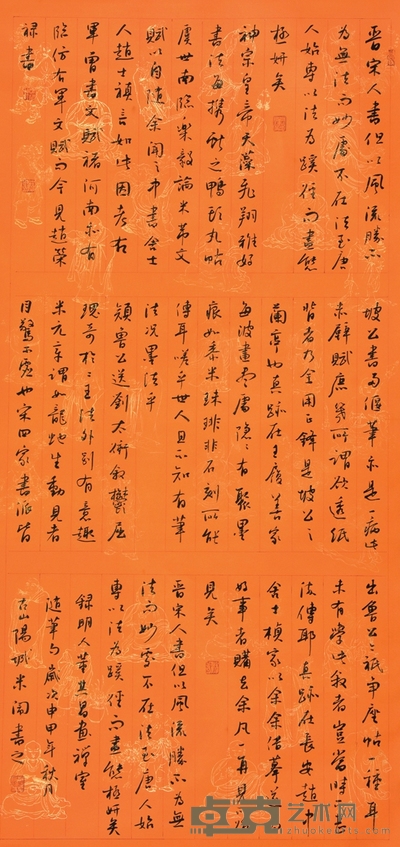 晉宋人書但以風流勝不
為無法而妙處不在法至唐
人始專以法為蹊徑而盡態
極妍矣
神宗皇帝天藻飛翔雅好
書法每攜獻之鴨頭丸帖
虞世南臨樂毅論米芾文
賦以自隨余聞之中書舍士
人趙士禎言如此因考右
軍曾書文賦褚河南亦有
臨仿右軍文賦而今見趙榮
祿書
坡公書多偃筆亦是一病此
赤壁賦庶幾所謂欲透紙
背者乃全用正鋒是坡公之
蘭亭也真跡在王履善家
每波畫盡處隱隱有聚墨
痕如黍米珠琲非石刻所能
傳耳嗟乎世人且不知有筆
法況墨法乎
顏魯公送劉太沖敘鬱屈
瑰奇於二王法外別有意趣
米元章謂如龍蛇生動見者
目驚不虛也宋四家書派皆
出魯公亦祇爭座帖一種耳
未有學此敘者豈當時不甚
流傳耶真跡在長安趙中
舍士楨家以余借摹遂為
好事者購去余凡一再見不
見矣
晉宋人書但以風流勝不為無
法而妙處不在法至唐人始
專以法為蹊徑而盡態極妍矣
錄明人董其昌畫禪室
隨筆句歲次甲申年秋月
古山陽城米鬧書之
卓克艺术网
zhuokearts.com